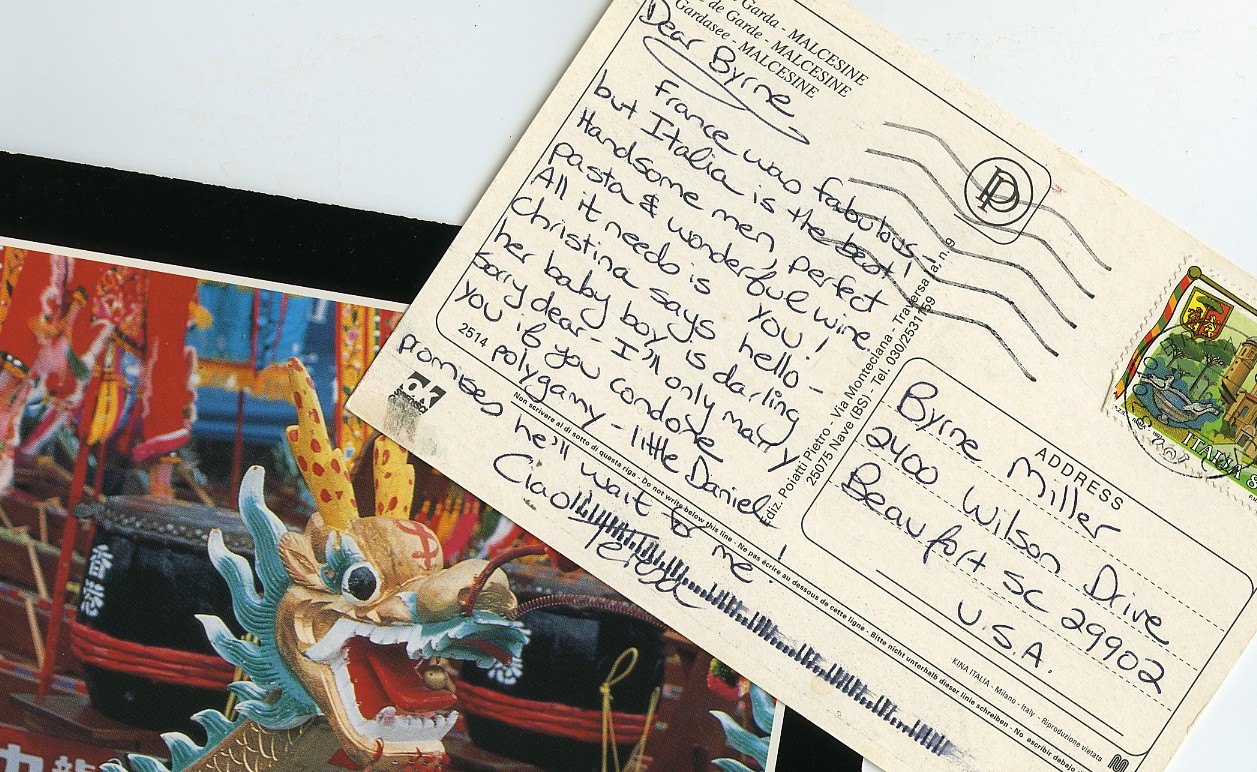 Garda - MALCESINE
de Garde - MALCESINE
Gardasee - MALCESINE
Dear Byrne
France was fabulous,
but Italia is the best!
Handsome men, perfect
pasta & wonderful wine.
All it needs is you!
Christina says hello -
her baby boy is darling
Sorry dear - I'll only marry
you if you condone
polygamy - little Daniel
promises he'll wait for me!
Ciao!
2514
Ediz. Poiatti Pietro - Via Monteclana - Traversa la, n. 9
25075 Nave (BS) - Tel. 030/2531159
Non scrivere al di sotto di questa riga - Do not write below this line - Ne pas écrire au dessous de cette ligne - Bitte nicht unterhalb dieser linie schreiben - No escribir debajo
PP
ITALIA 8
ADDRESS
Byrne Miller
2400 Wilson Drive
Beaufort SC 29902
U.S.A.
KINA ITALIA - Milano - Italy - Riproduzione vietata